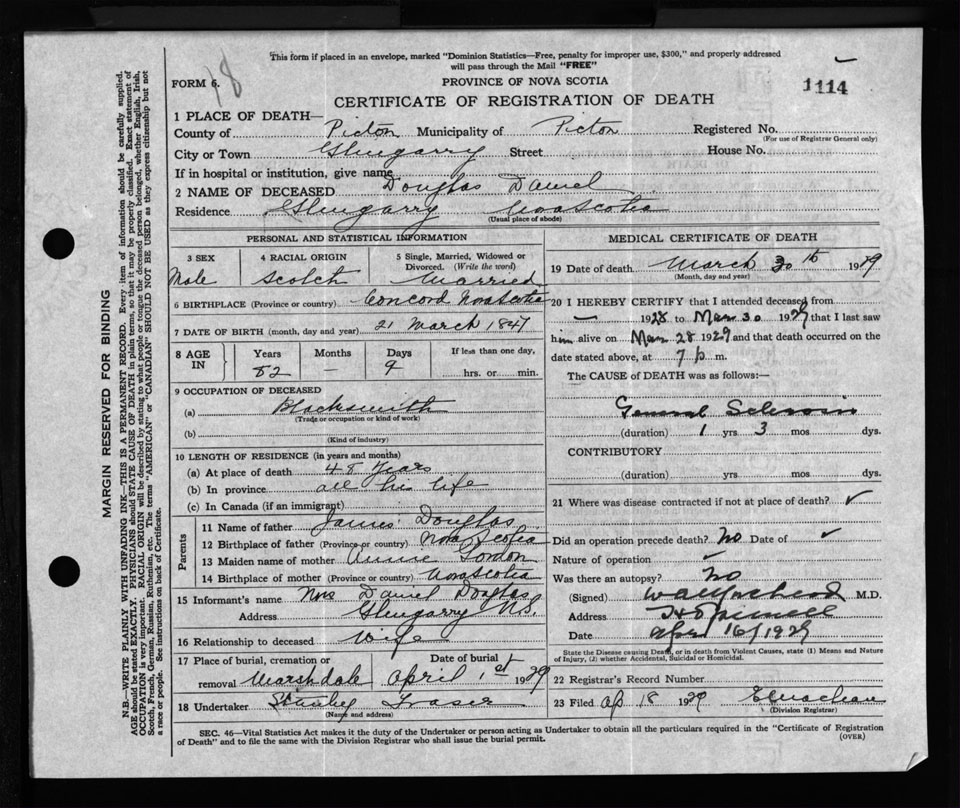 This form if placed in an envelope, marked "Dominion Statistics—Free, penalty for improper use, $300," and properly addressed
will pass through the Mail "FREE"
FORM 6. 18
PROVINCE OF NOVA SCOTIA
1114
CERTIFICATE OF REGISTRATION OF DEATH
1 PLACE OF DEATH—
County of Pictou Municipality of Pictou Registered No.
(For use of Registrar General only)
City or Town Glengarry Street House No.
If in hospital or institution, give name
2 NAME OF DECEASED Douglas Daniel
Residence Glengarry Nova Scotia
(Usual place of abode)
PERSONAL AND STATISTICAL INFORMATION
3 SEX 4 RACIAL ORIGIN 5 Single, Married, Widowed or Divorced. (Write the word)
Male Scotch Married
6 BIRTHPLACE (Province or country) Concord Nova Scotia
7 DATE OF BIRTH (month, day and year) 21 March 1847
8 AGE IN Years Months Days If less than one day,
82 — 9 hrs. or min.
9 OCCUPATION OF DECEASED
(a) Blacksmith
(Trade or occupation or kind of work)
(b)
(Kind of industry)
10 LENGTH OF RESIDENCE (in years and months)
(a) At place of death 48 Years
(b) In province all his life
(c) In Canada (if an immigrant)
Parents
11 Name of father James Douglas
12 Birthplace of father (Province or country) Nova Scotia
13 Maiden name of mother Annie Gordon
14 Birthplace of mother (Province or country) Nova Scotia
15 Informant's name Mrs Daniel Douglas
Address Glengarry N.S.
16 Relationship to deceased Wife
17 Place of burial, cremation or removal Marshdale Date of burial April 1st 1929
18 Undertaker Stanley Fraser
(Name and address)
MEDICAL CERTIFICATE OF DEATH
19 Date of death March 30th 1929
(Month, day and year)
20 I HEREBY CERTIFY that I attended deceased from
— 1928 to Mar 30 1929 that I last saw
him alive on Mar 28 1929 and that death occurred on the
date stated above, at 7 p m.
The CAUSE of DEATH was as follows:—
General
(duration) 1 yrs 3 mos dys.
CONTRIBUTORY
(duration) yrs mos dys.
21 Where was disease contracted if not at place of death? ✓
Did an operation precede death? No Date of ✓
Nature of operation ✓
Was there an autopsy? No
(Signed) M.D.
Address Hopewell
Date Apr 16/1929
State the Disease causing Death, or in death from Violent Causes, state (1) Means and Nature
of Injury, (2) whether Accidental, Suicidal or Homicidal.
22 Registrar's Record Number
23 Filed Ap 18 1929
(Division Registrar)
SEC. 46—Vital Statistics Act makes it the duty of the Undertaker or person acting as Undertaker to obtain all the particulars required in the "Certificate of Registration
of Death" and to file the same with the Division Registrar who shall issue the burial permit. (OVER)
MARGIN RESERVED FOR BINDING
N.B.—WRITE PLAINLY WITH UNFADING INK—THIS IS A PERMANENT RECORD. Every item of information should be carefully supplied.
AGE should be stated EXACTLY. PHYSICIANS should STATE CAUSE OF DEATH in plain terms, so that it may be properly classified. Exact statement of
OCCUPATION is very important. RACIAL ORIGIN will be described by stating to what people or tongue the deceased person belonged, whether English, Irish,
Scotch, French, German, Russian, Ruthenian, etc. The terms "AMERICAN" or "CANADIAN" SHOULD NOT BE USED as they express citizenship but not
a race or people. See instructions on back of Certificate.